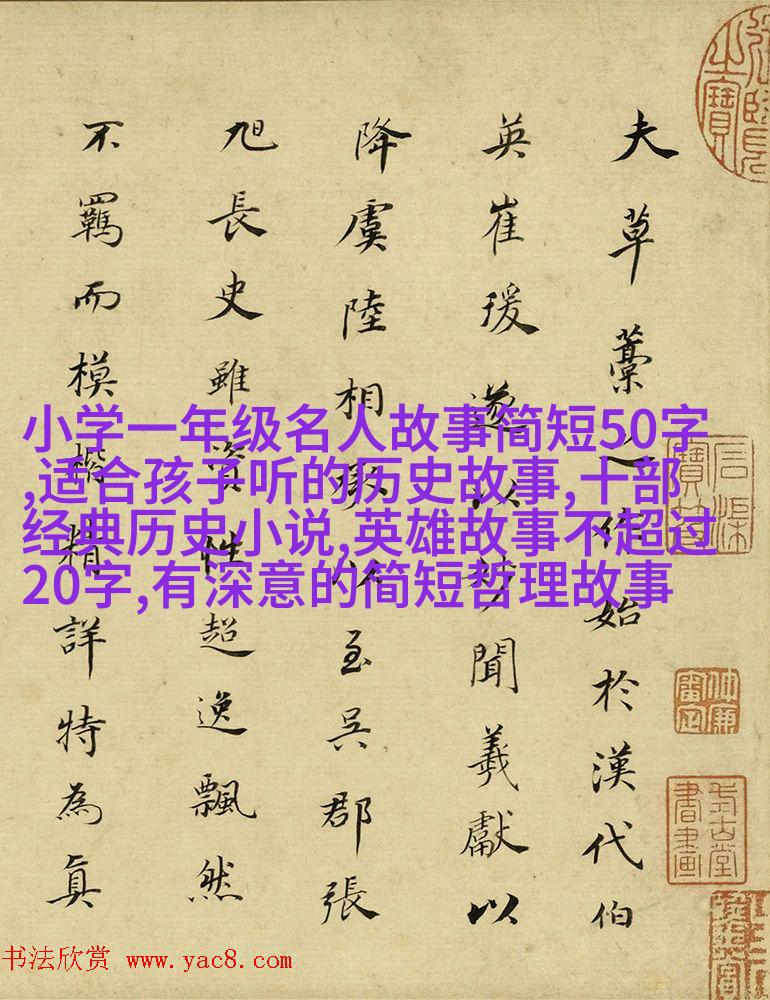 夫草藁之作始於漢代伯
英崔瑗遂以妙聞羲獻以
降虞陸相承以至吳郡張
旭長史雖資性超逸飄然
不羈而模楷精詳特為真
小学一年级名人故事简短50字
,适合孩子听的历史故事,十部
经典历史小说,英雄故事不超过
20字,有深意的简短哲理故事
书法欣赏 www.yac8.com